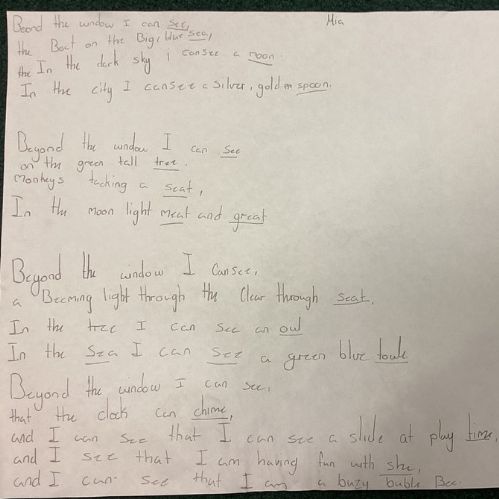 Mia
Beond the window I can see,
the Boat on the Big, blue sea,
the In the dark sky i cansee a moon.
In the city I cansee a silver, golden spoon.
Beyond the window I can see
on the green tall tree.
monkeys tacking a seat,
In the moon light meat and great
Beyond the window I Cansee,
a Beeming light through the Clear through seat,
In the tree I can see an owl
In the Sea I can see a green blue towle
Beyond the window I can see,
that the clock can chime,
and I can see that I can see a slide at play time,
and I see that I am having fun with she,
and I can see that I am a buzy buble Bee.